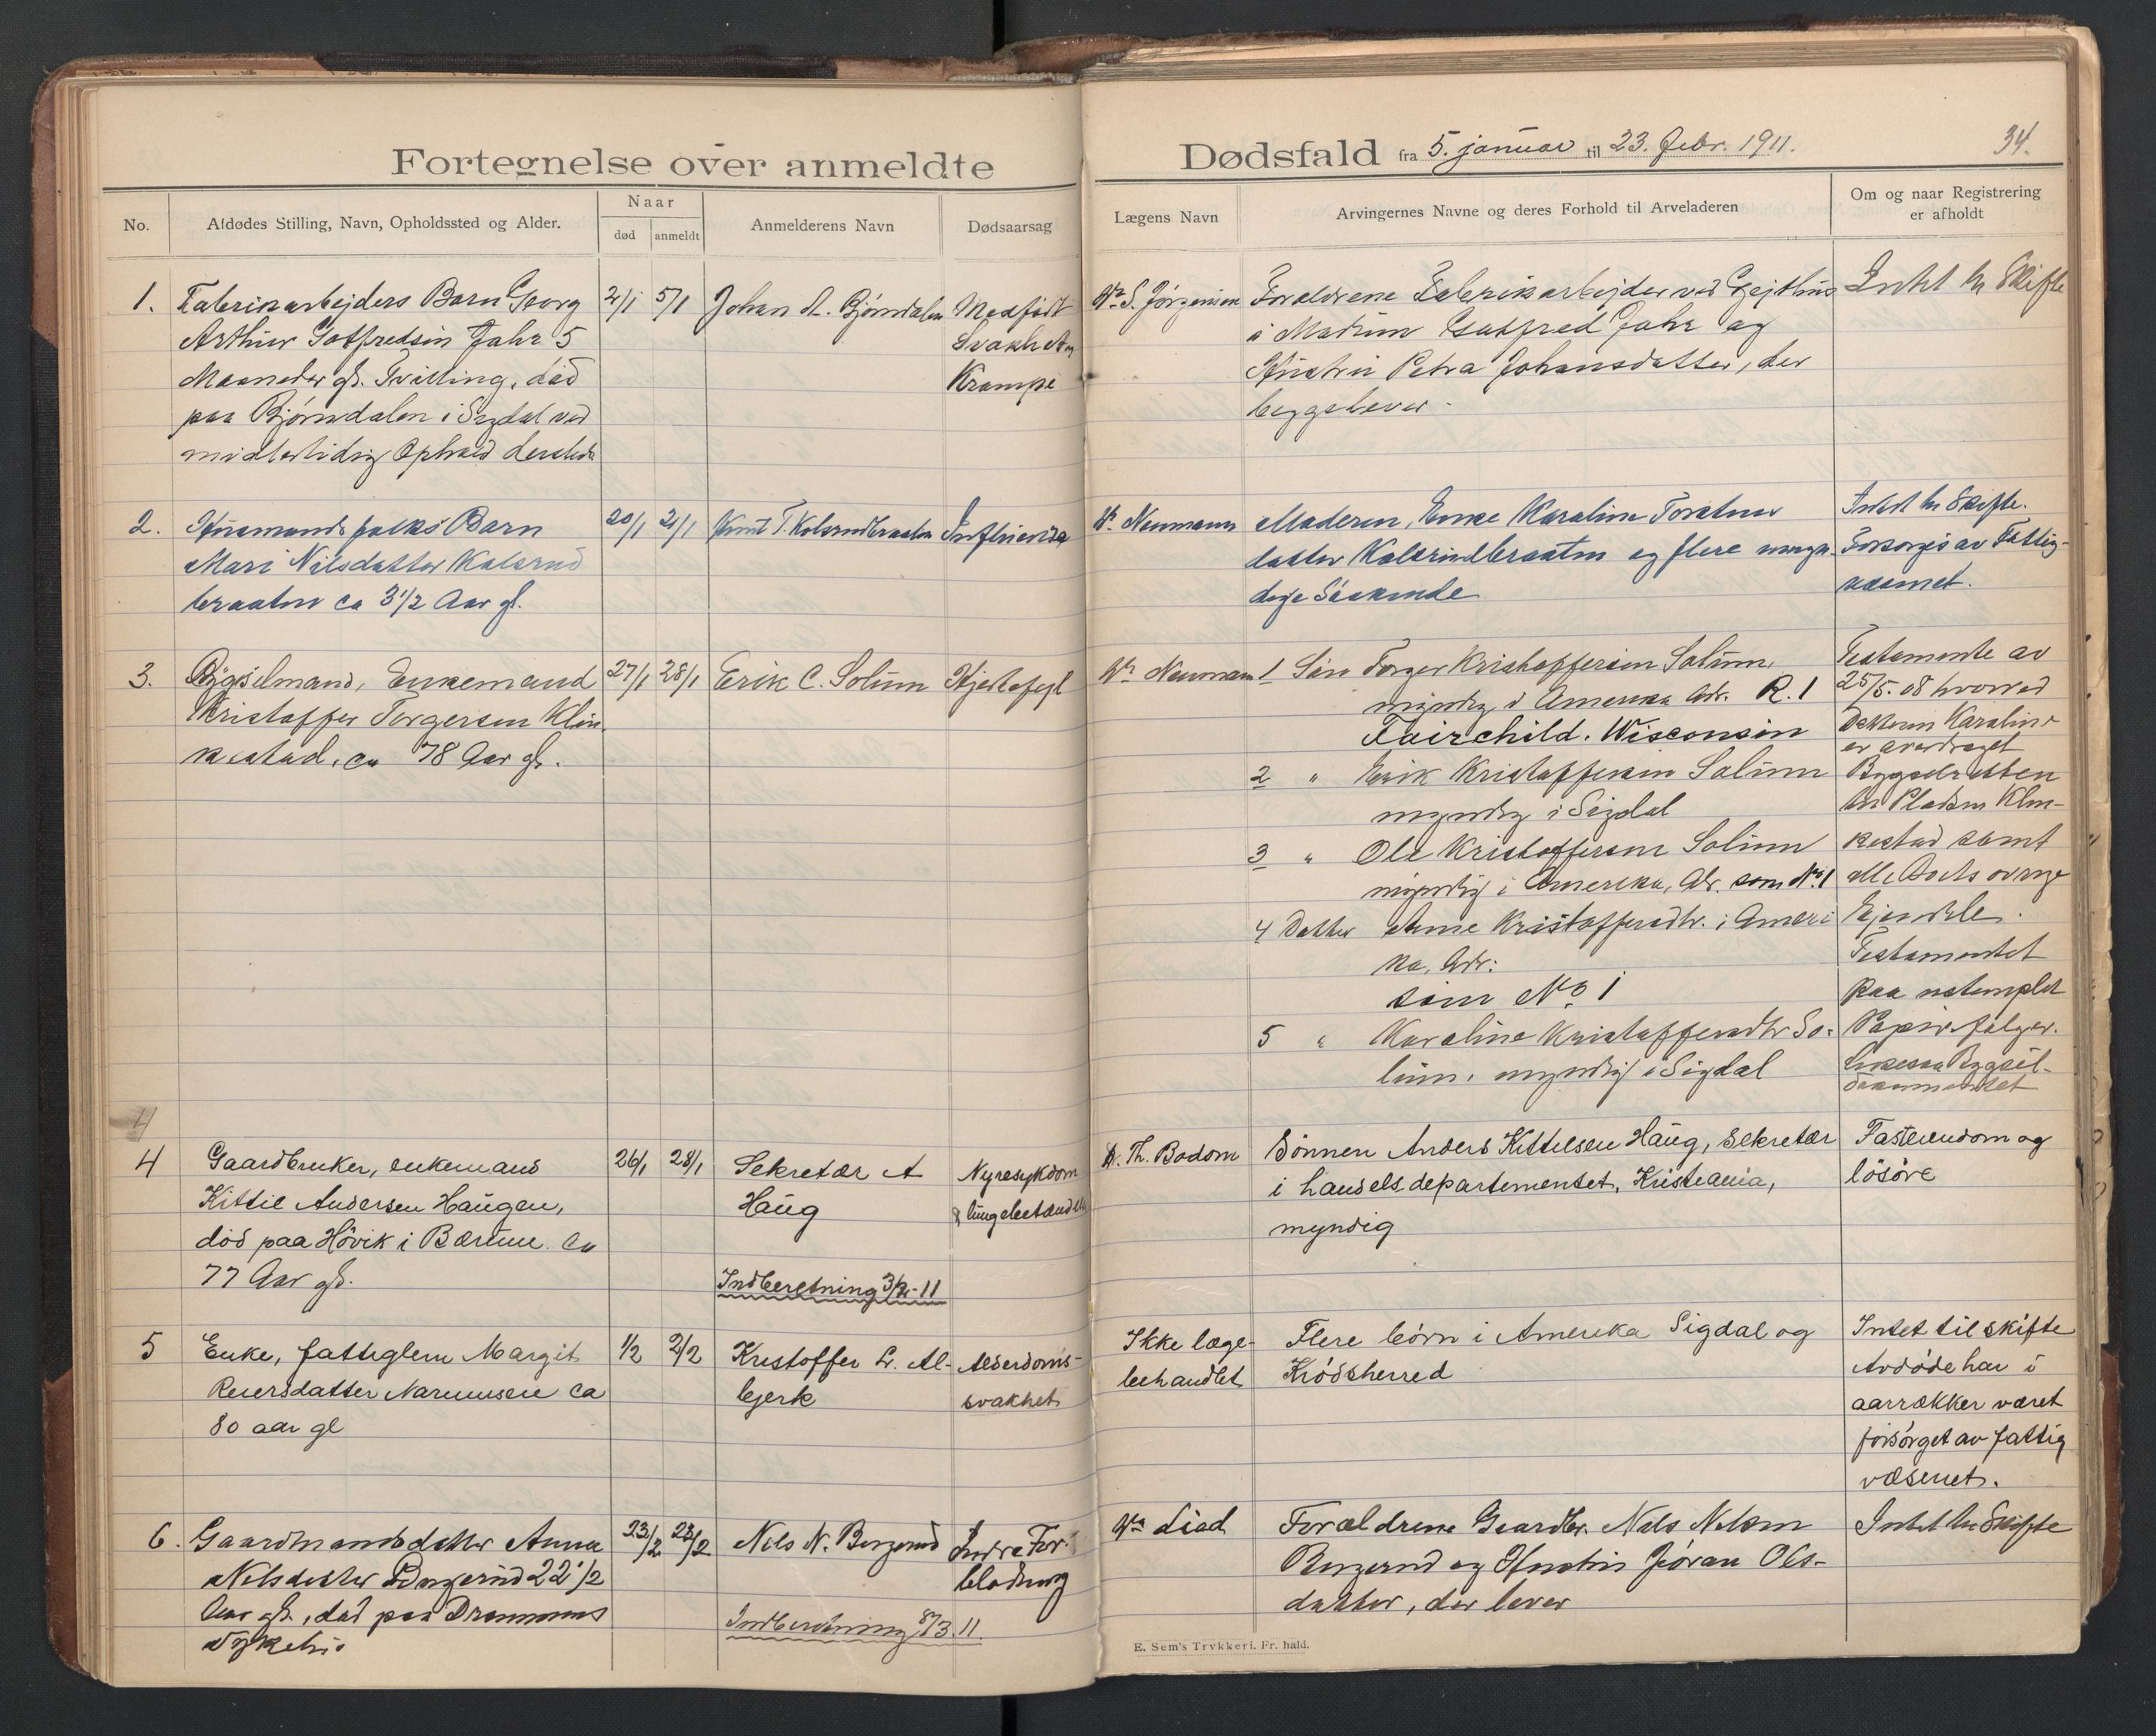 Fortegnelse over anmeldte
Dødsfald fra 5. januar til 23. febr. 1911.
34.
No.
Afdødes Stilling, Navn, Opholdssted og Alder.
Naar
død
anmeldt
Anmelderens Navn
Dødsaarsag
Lægens Navn
Arvingernes Navne og deres Forhold til Arveladeren
Om og naar Registrering
er afholdt
1.
Fabrikarbejders Barn Georg
Arthur Gotfredsen Jahr 5
Maaneder gl. Tvilling, død
paa Bjørndalen i Sigdal ved
midlertidig Ophold dersteds
2/1
5/1
Johan A. Bjørndalen
Medfødt
Svakhet
Krampe
Dr. S. Jørgensen
Forældrene Fabrikarbejder ved Gejthus
i Modum Gotfred Jahr og
Hustru Petra Johansdatter, der
begge lever
Intet til Skifte
2.
Husmandsfolks Barn
Mari Nilsdatter Kolsrud
braaten ca 3 1/2 Aar gl.
20/1
21/1
Knut T. Kolsrudbraaten
Influenza
Dr. Neumann
Moderen, Enke Karoline Torstens
datter Kolsrudbraaten og flere umyn-
dige Søskende
Intet til Skifte.
Forsørges av Fattig-
væsnet.
3.
Bygselmand, Enkemand
Kristoffer Torgersen Klin
kestad, ca 78 Aar gl.
27/1
28/1
Erik C. Solum
Hjertefejl
Dr. Neumann
1 Søn Torger Kristoffersen Solum,
myndig i Amerika Adr. R. 1
Fairchild. Wisconsin
2 " Erik Kristoffersen Solum
myndig i Sigdal
3 " Ole Kristoffersen Solum
myndig i Amerika, Adr. som No. 1
4 Datter Anne Kristoffersdtr. i Ameri
ka, Adr:
som No 1
5 " Karoline Kristoffersdtr So-
lum, myndig i Sigdal
Testamente av
25/5. 08 hvorved
Datteren Karoline
er overdraget
Bygselretten
til Pladsen Klin-
kestad samt
alle Boets øvrige
Ejendele.
Testamentet
paa ustemplet
Papir følger.
likesaa Bygsel-
dokumentet
4
4
Gaardbruker, enkemand
Kittil Andersen Haugen,
død paa Høvik i Bærum. Ca
77 Aar gl.
26/1
28/1
Sekretær A
Haug
Indberetning 3/2-11
Nyresykdom
& lungebetændelse
Dr. Th. Bodom
Sønnen Anders Kittilsen Haug, sekretær
i handelsdepartementet, Kristiania,
myndig
Fasteiendom og
løsøre
5
Enke, fattiglem Margit
Reiersdatter Narumseie ca
80 aar gl
1/2
2/2
Kristoffer L. Al-
bjerk
Alderdoms-
svakhet
Ikke læge-
behandlet
Flere børn i Amerika Sigdal og
Krødsherred
Intet til skifte
Avdøde har i
aarrækker været
forsørget av fattig
væsenet.
6.
Gaardmandsdatter Anna
Nilsdatter Bergerud 22 1/2
Aar gl., død paa Drammens
Sykehus
23/2
23/2
Nils N. Bergerud
Indberetning 8/3. 11.
Indre For-
blødning
Dr. Liad
Forældrene Gaardbr. Nils Nilsen
Bergerud og Hustru Jøran Ols-
datter, der lever
Intet til Skifte
E. Sem's Trykkeri. Fr. hald.